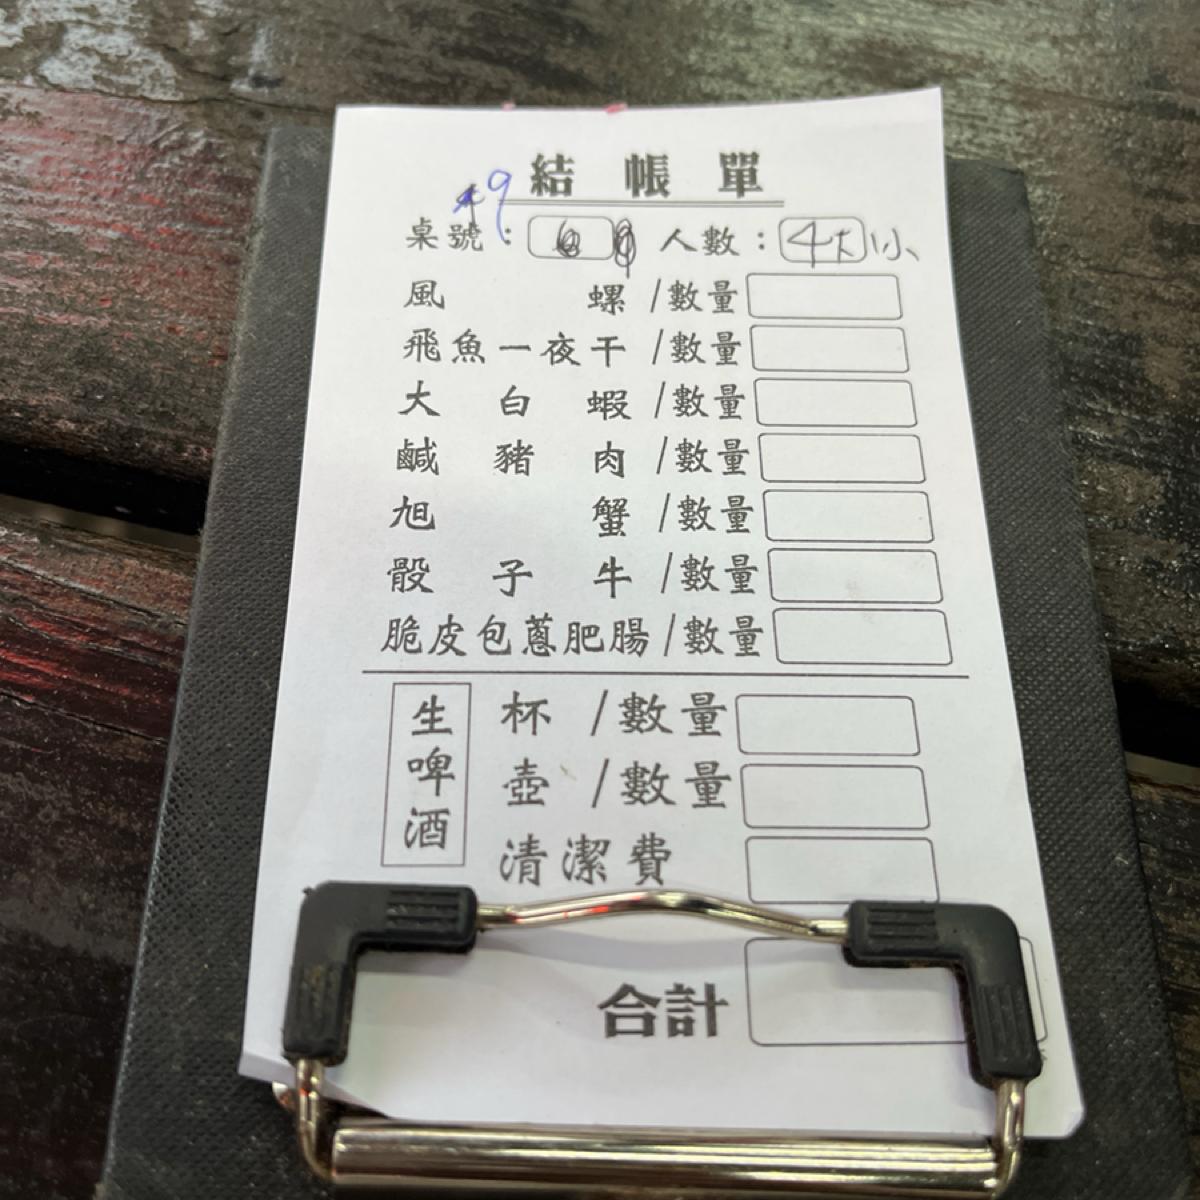 結帳單
9
桌號： 人數：4大1小
風螺/數量
飛魚一夜干/數量
大白蝦/數量
鹹豬肉/數量
旭蟹/數量
骰子牛/數量
脆皮包蔥肥腸/數量
生啤酒
杯/數量
壺/數量
清潔費
合計